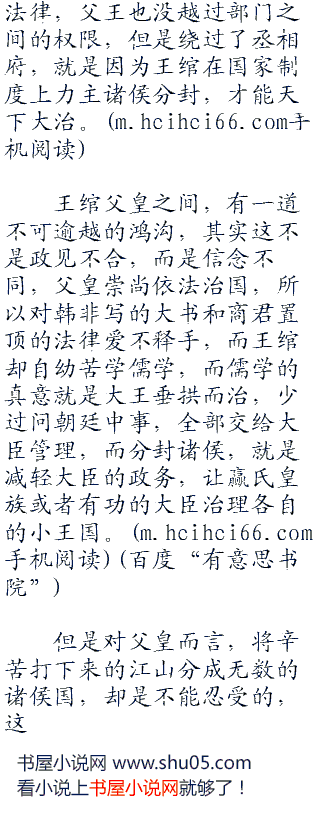 法律，父王也没越过部门之
间的权限，但是绕过了丞相
府，就是因为王绾在国家制
度上力主诸侯分封，才能天
下大治。(m.hcihci66.com手
机阅读)
王绾父皇之间，有一道
不可逾越的鸿沟，其实这不
是政见不合，而是信念不
同，父皇崇尚依法治国，所
以对韩非写的大书和商君置
顶的法律爱不释手，而王绾
却自幼苦学儒学，而儒学的
真意就是大王垂拱而治，少
过问朝廷中事，全部交给大
臣管理，而分封诸侯，就是
减轻大臣的政务，让嬴氏皇
族或者有功的大臣治理各自
的小王国。(m.hcihci66.com
手机阅读)(百度“有意思书
院”)
但是对父皇而言，将辛
苦打下来的江山分成无数的
诸侯国，却是不能忍受的，
这
书屋小说网 www.shu05.com
看小说上书屋小说网就够了！